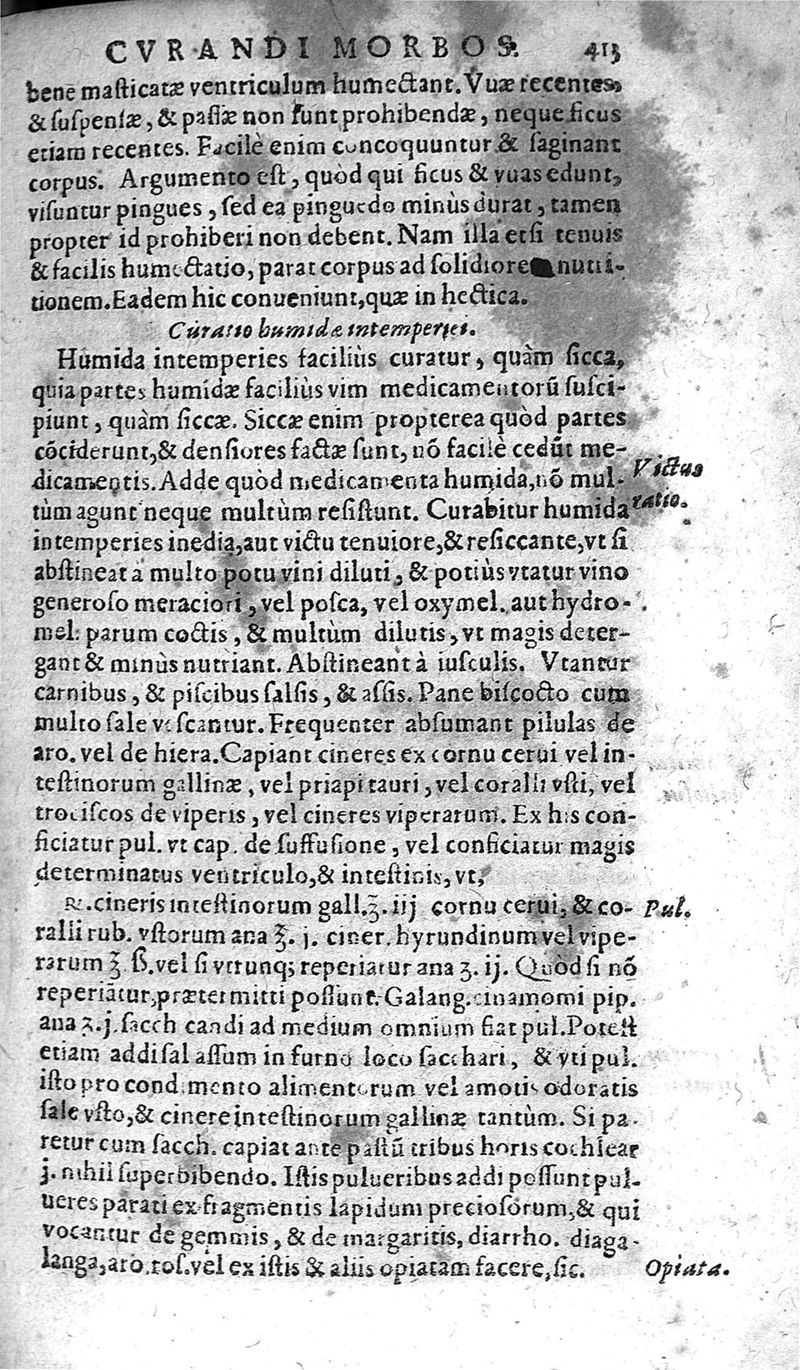 CVRANDI MORBOS. 413
bene maſticatæ ventriculum humectant. Vuæ recentes,
& ſuſpenſæ, & paſſæ non ſunt prohibendæ, neque ficus
etiam recentes. Facilè enim concoquuntur & ſaginant
corpus. Argumento eſt, quòd qui ficus & vuas edunt,
viſuntur pingues, ſed ea pinguedo minùs durat, tamen
propter id prohiberi non debent. Nam illa etſi tenuis
& facilis humectatio, parat corpus ad ſolidiorem nutri-
tionem. Eadem hic conueniunt, quæ in hectica.
Curatio humidæ intemperiei.
Humida intemperies faciliùs curatur, quàm ſicca,
quia partes humidæ faciliùs vim medicamentorū ſuſci-
piunt, quàm ſiccæ. Siccæ enim propterea quòd partes
cōciderunt, & denſiores factæ ſunt, nō facilè cedūt me-
dicamentis. Adde quòd medicamenta humida, nō mul-
tùm agunt neque multùm reſiſtunt. Curabitur humida
Victus
ratio.
intemperies inedia, aut victu tenuiore, & reſiccante, vt ſi
abſtineat à multo potu vini diluti, & potiùs vtatur vino
generoſo meraciori, vel poſca, vel oxymel. aut hydro-
mel: parum coctis, & multùm dilutis, vt magis deter-
gant & minùs nutriant. Abſtineant à iuſculis. Vtantur
carnibus, & piſcibus ſalſis, & aſſis. Pane biſcocto cum
multo ſale veſcantur. Frequenter abſumant pilulas de
aro. vel de hiera. Capiant cineres ex cornu cerui vel in-
teſtinorum gallinæ, vel priapi tauri, vel coralli vſti, vel
trociſcos de viperis, vel cineres viperarum. Ex his con-
ficiatur pul. vt cap. de ſuffuſione, vel conficiatur magis
determinatus ventriculo, & inteſtinis, vt,
℞. cineris inteſtinorum gall. ℥. iij cornu cerui, & co-
Pul.
ralii rub. vſtorum ana ℥. j. ciner. hyrundinum vel vipe-
rarum ℥ ß. vel ſi vtrunq; reperiatur ana ʒ. ij. Quòd ſi nō
reperiātur, prætermitti poſſunt. Galang. cinamomi pip.
ana ʒ. j. ſacch candi ad medium omnium fiat pul. Poteſt
etiam addi ſal aſſum in furno loco ſacchari, & vti pul.
iſto pro condimento alimentorum vel amotis odoratis
ſale vſto, & cinere inteſtinorum gallinæ tantùm. Si pa-
retur cum ſacch. capiat ante paſtū tribus horis cochlear
j. nihil ſuperbibendo. Iſtis pulueribus addi poſſunt pul-
ueres parati ex fragmentis lapidum precioſorum, & qui
vocantur de gemmis, & de margaritis, diarrho. diaga-
langa, aro. roſ. vel ex iſtis & aliis opiatam facere, ſic.
Opiata.